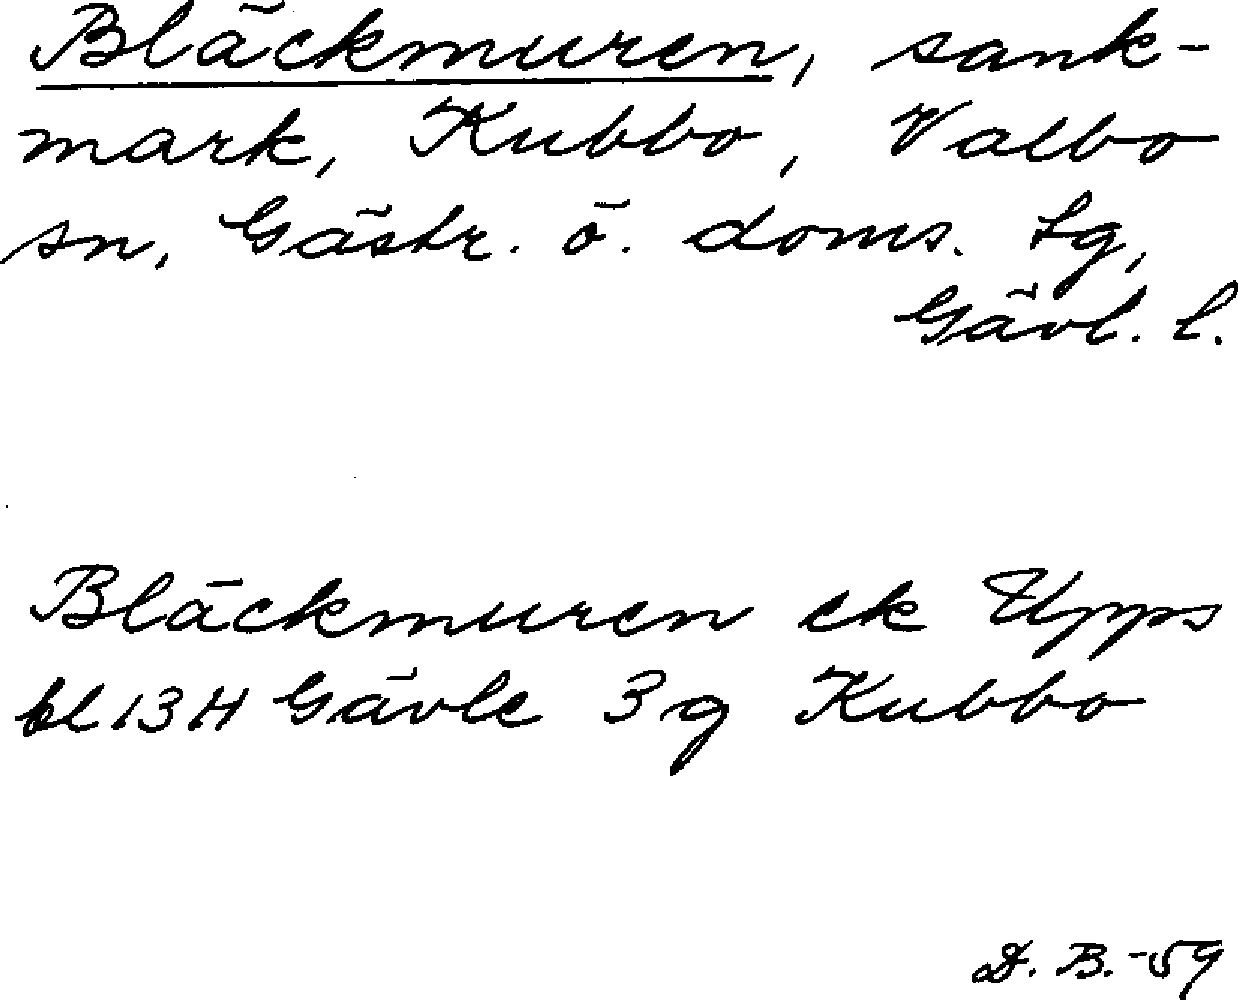 Bläckmuren, sank-
mark, Kubbo, Valbo
sn, Gästr. ö. doms. tg,
Gävl. l.
Bläckmuren ek Upps
bl 13 H Gävle 3 g Kubbo
D. B. -59